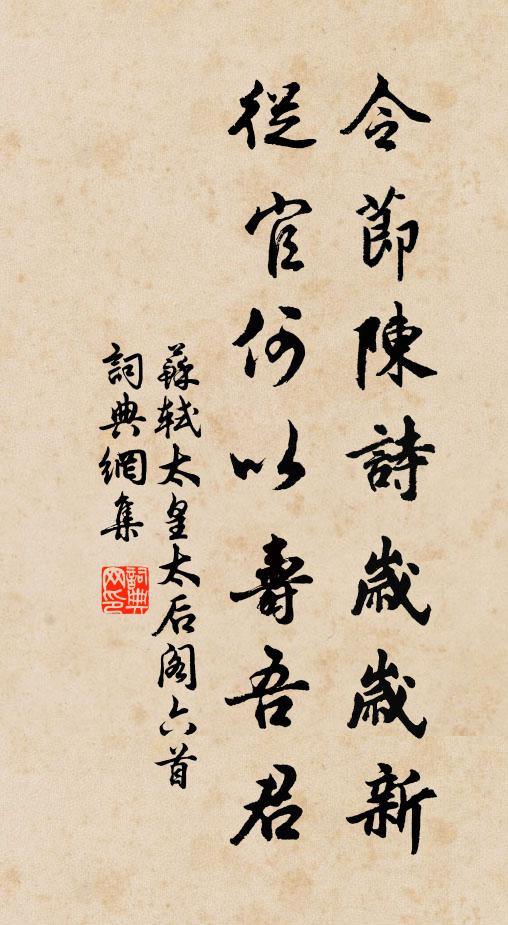 令節陳詩歲歲新
從官何以壽吾君
蘇軾太皇太后閣六首
詞典網集
詞典网印